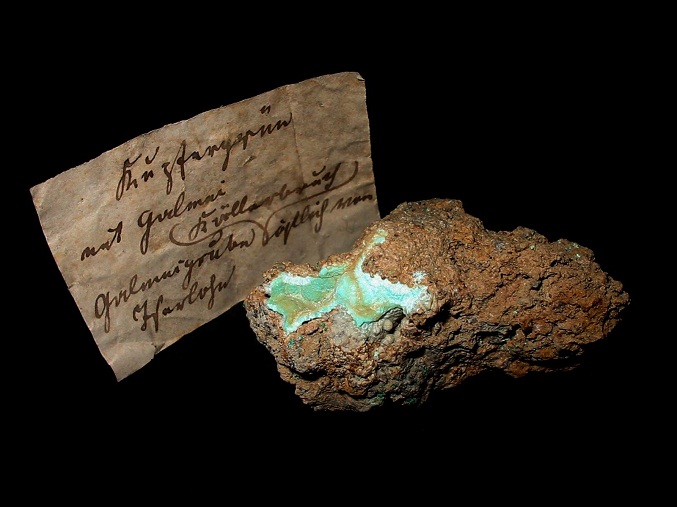 Kupfergrün
mit Galmei
Köllerbruch
Galmeigrube östlich von
Iserlohn